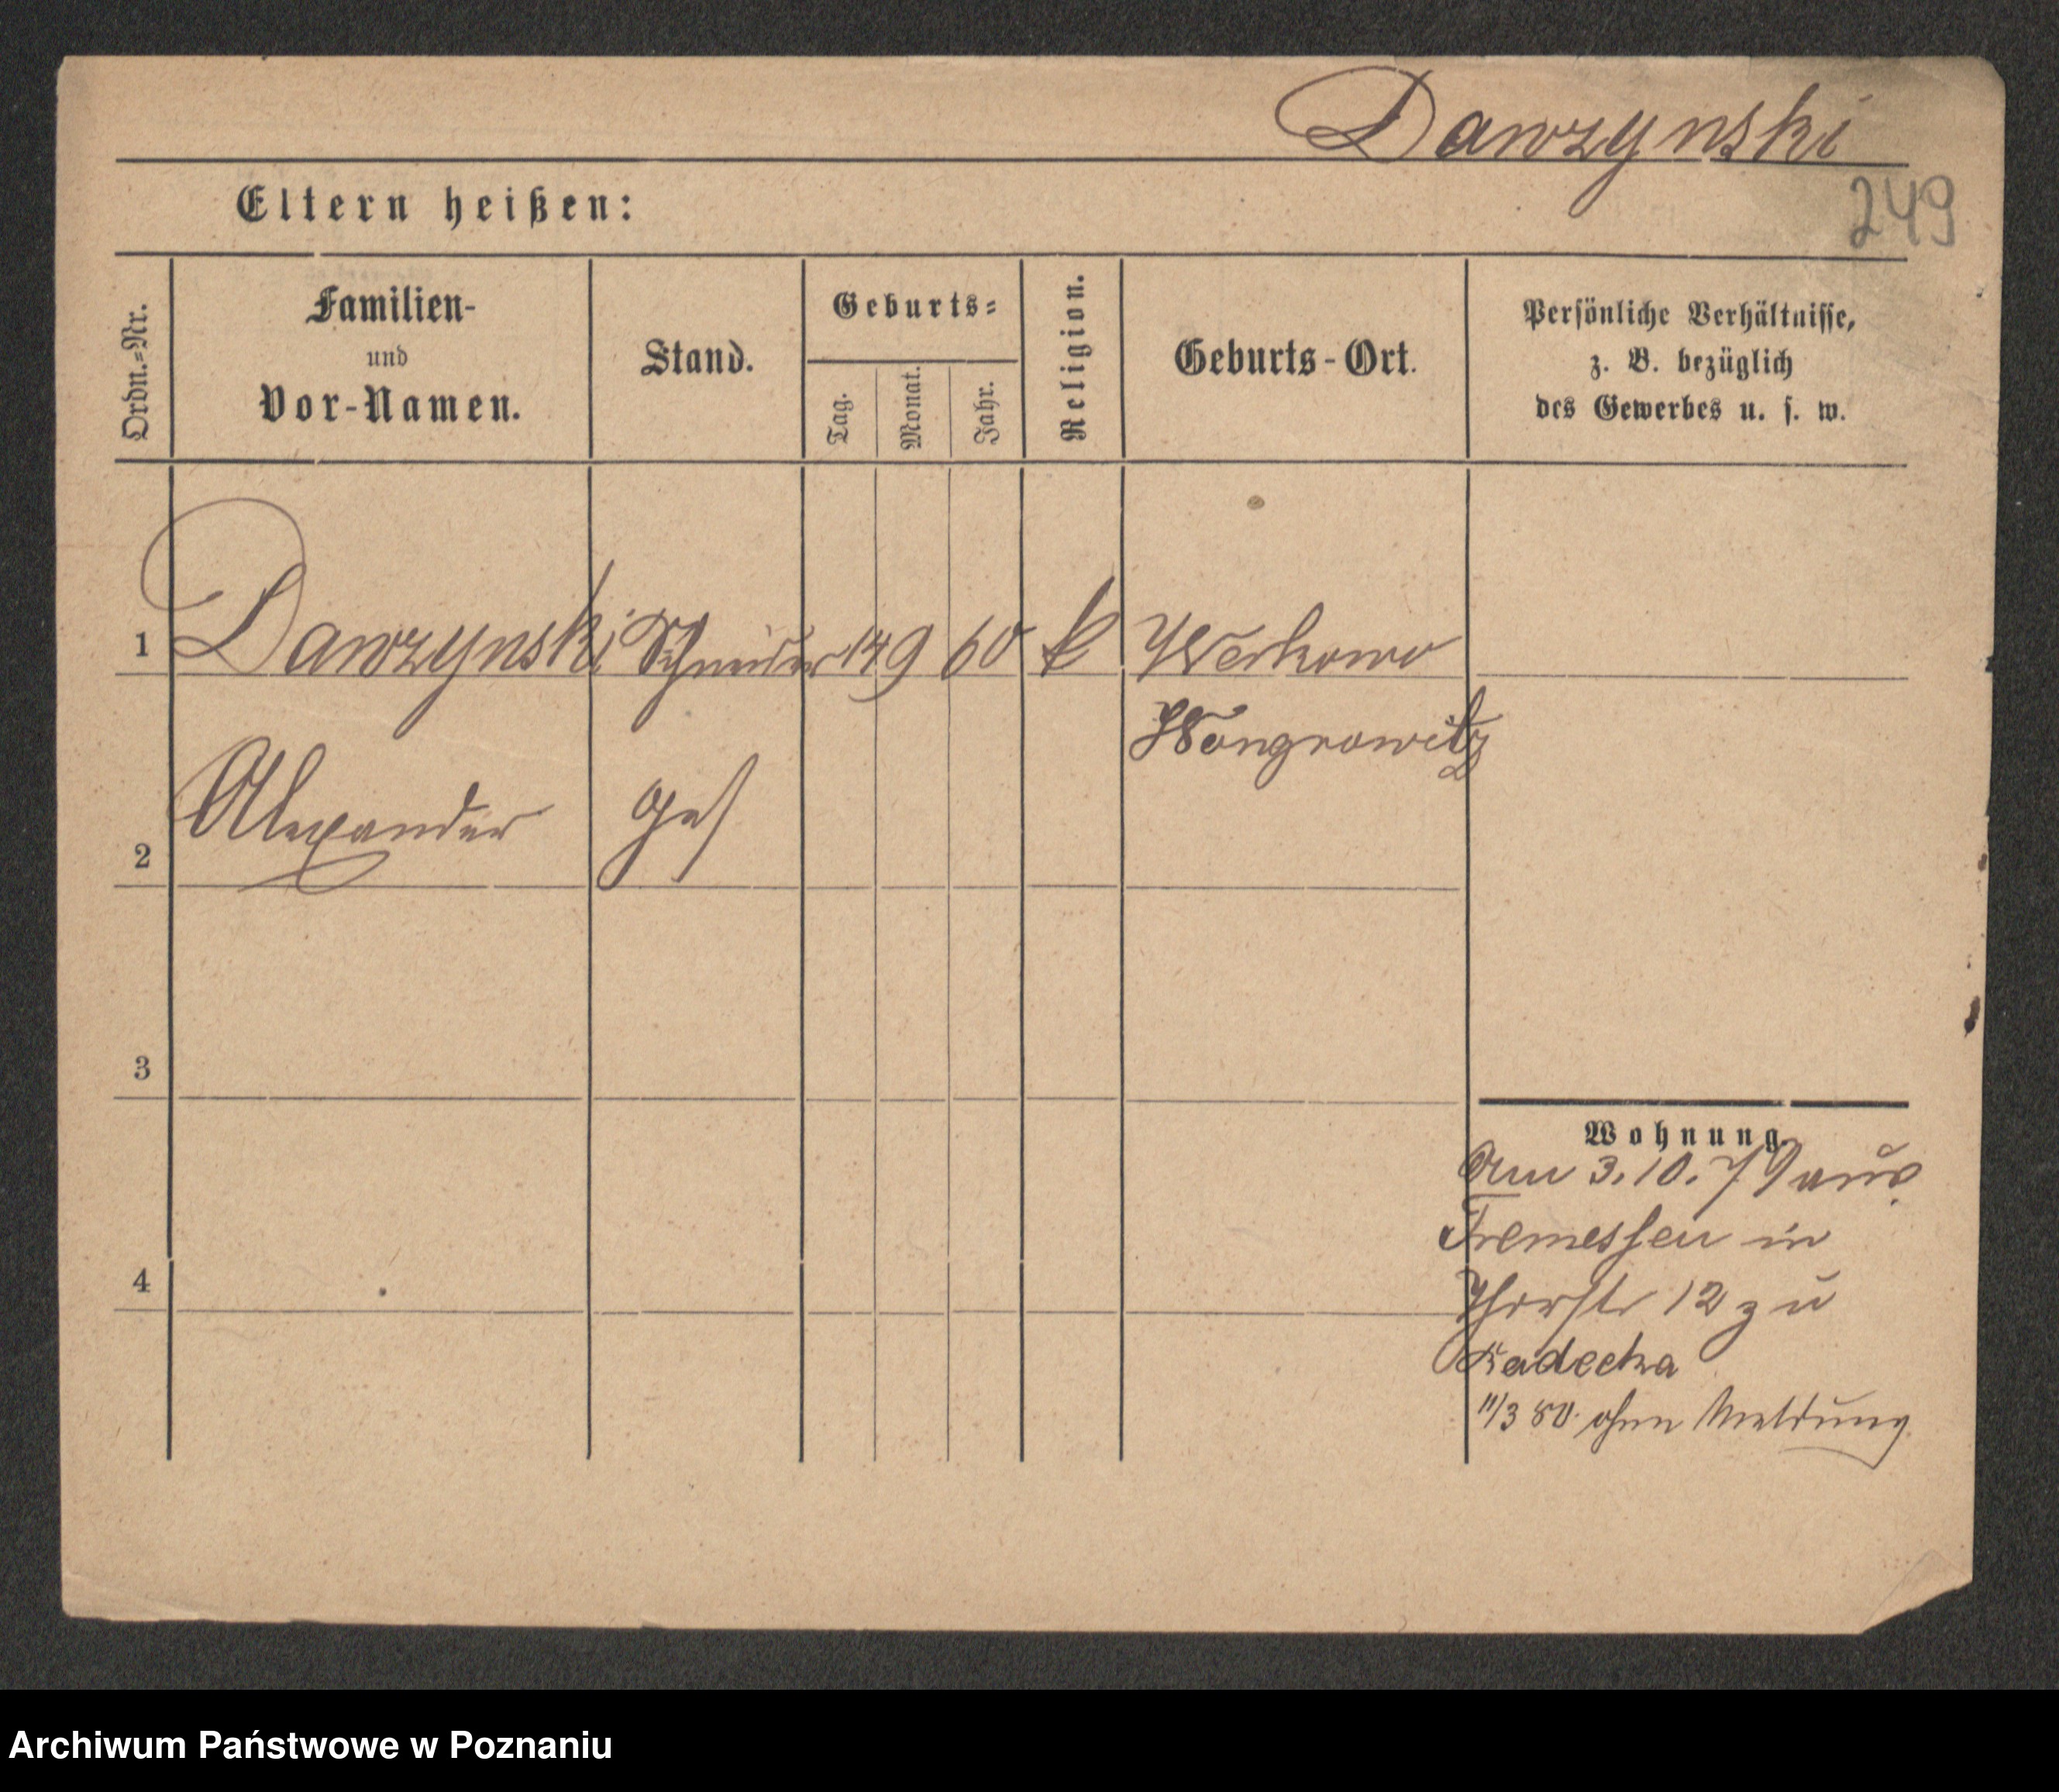 Dawzynski
249
Eltern heißen:
Ordn.-Nr.
Familien-
und
Vor-Namen.
Stand.
Geburts-
Tag.
Monat.
Jahr.
Religion.
Geburts-Ort.
Persönliche Verhältnisse,
z. B. bezüglich
des Gewerbes u. s. w.
1 Dawzynski Schneider 14 9 60 k Werkowo
Wongrowitz
2 Alexander Ges
3
4
Wohnung.
Am 3.10.79 aus
Tremessen in
12 zu
Radecka
11/3 80. ohne Meldung.
Archiwum Państwowe w Poznaniu